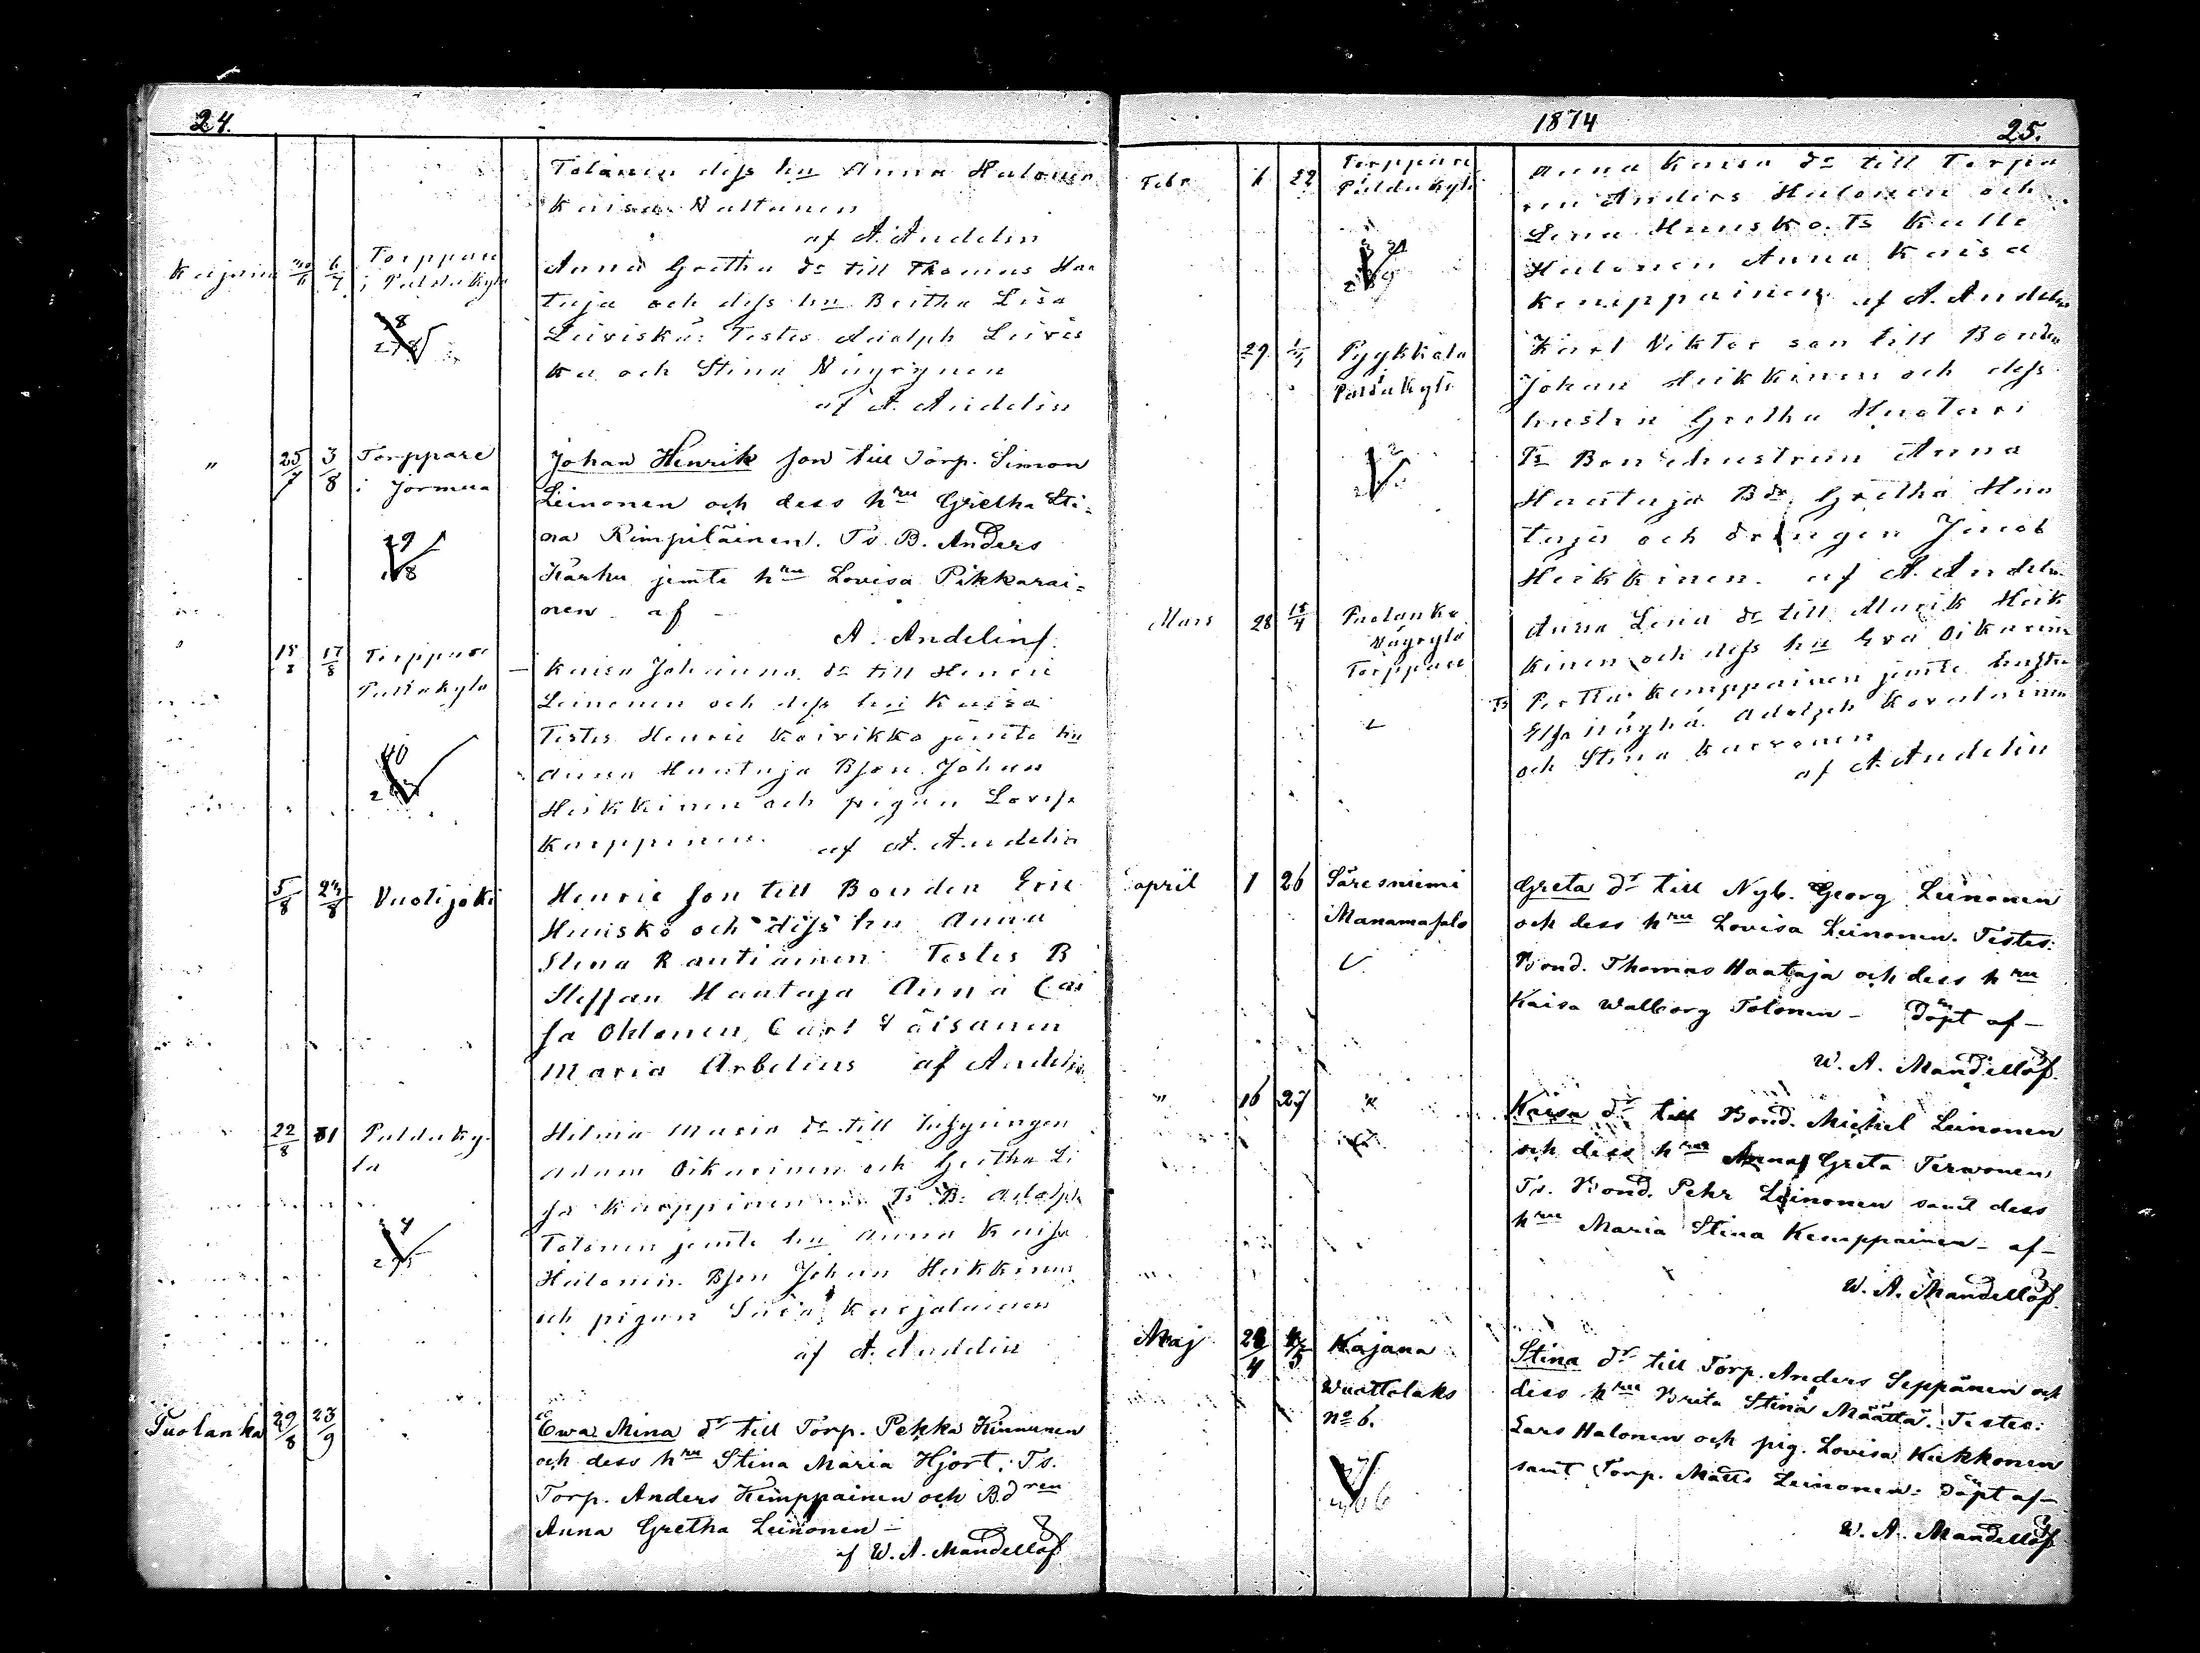 24.
Tolonen dess hu Anna Halonen
Kaisa Valtanen
af A. Andelin
Kajana 6/7 Torppare Anna Gretha dr till Thomas Haa
i Paldakylä taja och dess hu Beitha Lisa
Leiviskä: Testes Adolph Leivis
ka och Stina Näyrynen
af A. Andelin
" 25/7 3/8 Torppare Johan Henrik son till Torp. Simon
i Jormua Leinonen och dess hru Gretha Sti-
na Rimpiläinen. Ts. B. Anders
Karhu jemte hru Lovisa Pikkarai-
nen af –
A. Andelin
17/8 Torppare Kaisa Johanna dr till Henric
Paldakylä Leinonen och dess hu Kaisa
40 Testes Henric Koivikko jemte hu
Anna Haataja Bson Johan
Heikkinen och pigan Lovisa
Karppinen. af A. Andelin
5/8 Vuolijoki Henric son till Bonden Eric
Huusko och dess hu Anna
Stina Rautiainen Testes B
Steffan Haataja Anna Cai
sa Ohtonen, Carl Väisänen
Maria Arbelius af Andelin
22/8 31 Paldaky- Helena Maria dr till Inhysingen
lä Adam Oikarinen och Gretha Li
sa Karppinen Ts B. Adolph
Tolonen jemte hu Anna Kaisa
Halonen. Bson Johan Heikkinen
och pigan Karjalainen
af A. Andelin
Puolanka 29/8 23/9 Ewa Mina dr till Torp. Pekka Kinnunen
och dess hru Stina Maria Hjort. Ts.
Torp. Anders Kemppainen och B.dren
Anna Gretha Leinonen –
af W. A. Mandellöf
1874
25.
Febr 22 Torppare Anna Kaisa dr till Torpa
Paldakylä ren Anders Halonen och
Lena Huusko. Ts Kalle
Halonen Anna Kaisa
Kemppainen af A. Andelin
29 Pyykkölä Karl Viktor son till Bonden
Paldakylä Johan Heikkinen och dess
hustru Gretha Huotari
Ts Bondhustrun Anna
Haataja Bdr Gretha Haa
taja och drängen Jacob
Heikkinen. af A. Andelin
Mars 28 Puolanka Anna Lena dr till Heik
Torppare kinen och dess hu Eva Oikarinen
Ts Pertta Kemppainen jemte hustru
Elsa Adolph Kovalainen
och Stina Karvonen
af A. Andelin
april 1 26 Säresniemi Greta dr till Nyb. Georg Leinonen
Manamasalo och dess hru Lovisa Leinonen. Testes:
Bond. Thomas Haataja och dess hru
Kaisa Walborg Tolonen – döpt af –
W. A. Mandellöf.
" 16 27 " Kaisa dr till Bond. Michel Leinonen
och dess hru Anna Greta Terwonen
Ts. Bond. Pehr Leinonen samt dess
hru Maria Stina Kemppainen – af –
W. A. Mandellöf.
Maj Kajana Stina dr till Torp. Anders Seppänen och
Wuottolaks dess hru Brita Stina Määttä. Testes:
No 6. Lars Halonen och pig. Lovisa Kukkonen
samt Torp. Matts Leinonen: döpt af –
W. A. Mandellöf